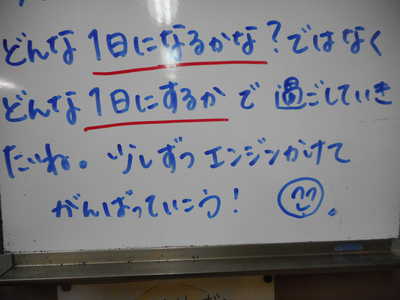 どんな1日になるかな？ではなく
どんな1日にするかで過ごしていき
たいね。少しずつエンジンかけて
がんばっていこう！